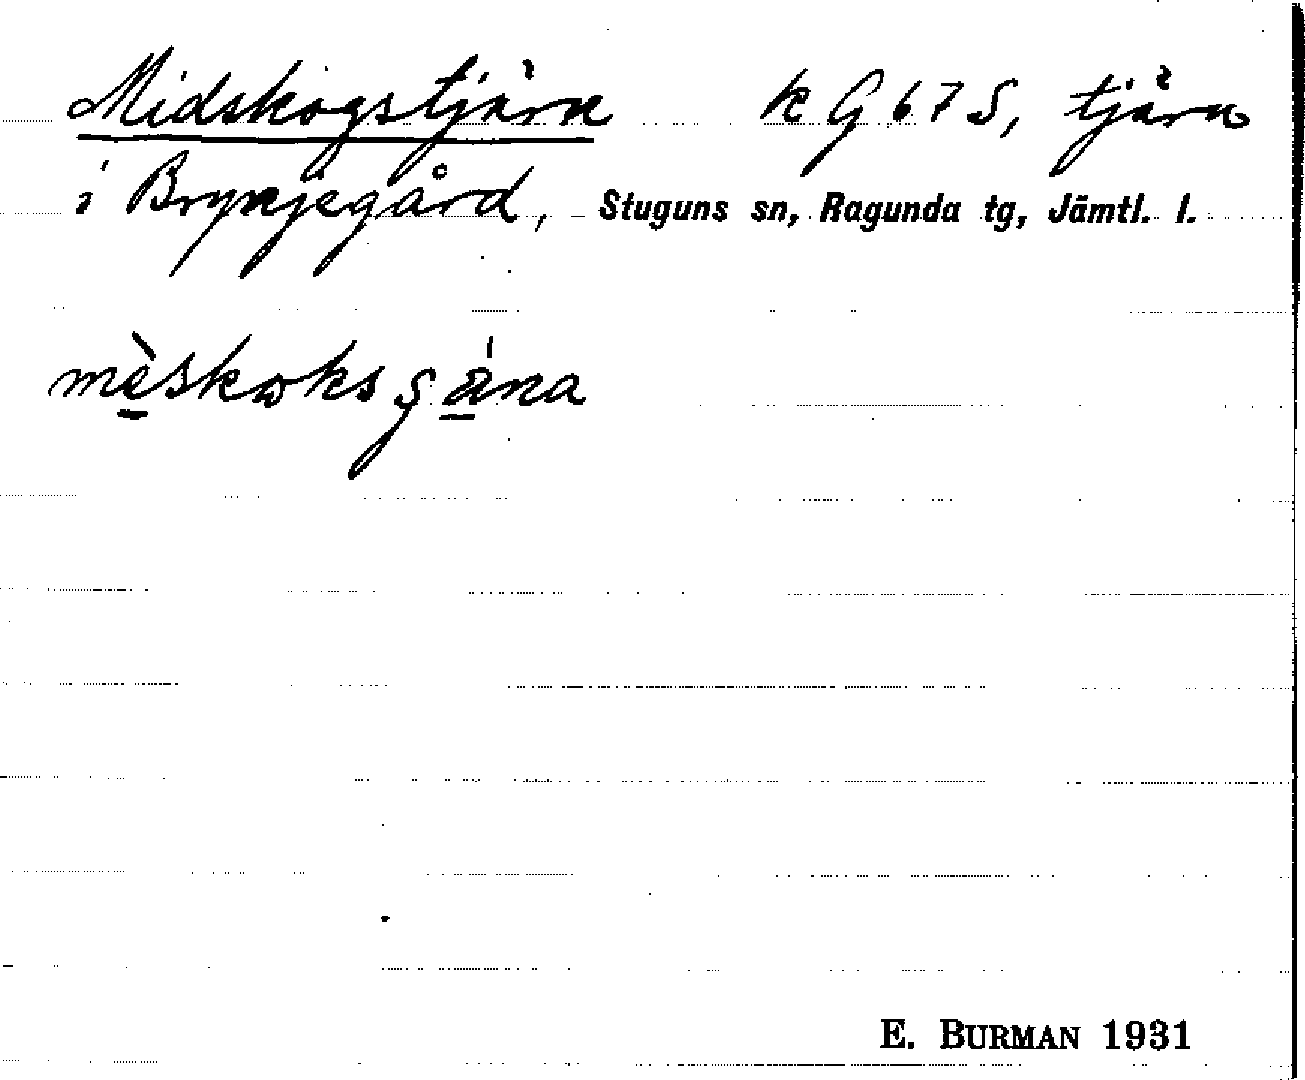 Midskogstjärn k G 67 S, tjärn
i Brynjegård, Stuguns sn, Ragunda tg, Jämtl. l.
mèskoks ʂána
E. BURMAN 1931